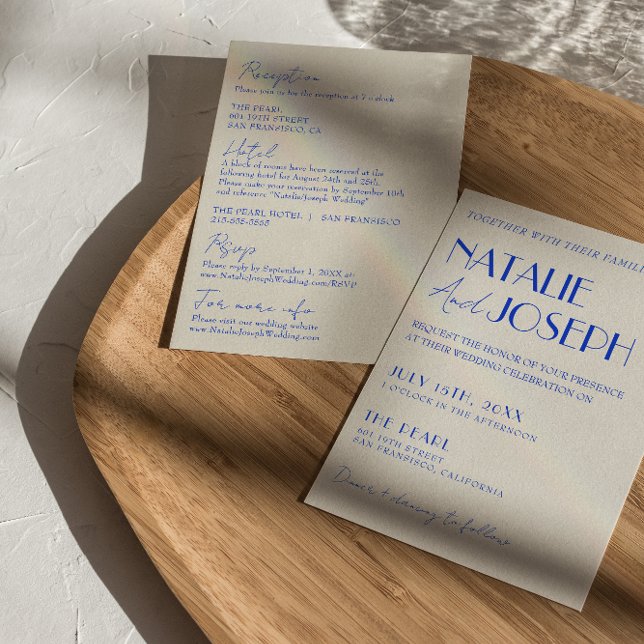 Reception
Please join us for the reception at 7 o'clock
THE PEARL
601 19TH STREET
SAN FRANSISCO, CA
Hotel
A block of rooms have been reserved at the
following hotel for August 24th and 25th.
Please make your reservation by September 10th
and reference "Natalie/Joseph Wedding"
THE PEARL HOTEL | SAN FRANCISCO
215-555-5555
Rsvp
Please reply by September 1, 20XX at:
www.NatalieJosephWedding.com/RSVP
For more info
Please visit our wedding website
www.NatalieJosephWedding.com
TOGETHER WITH THEIR FAMILI
NATALIE
And JOSEPH
REQUEST THE HONOR OF YOUR PRESENCE
AT THEIR WEDDING CELEBRATION ON
JULY 15TH, 20XX
1 O'CLOCK IN THE AFTERNOON
THE PEARL
601 19TH STREET
SAN FRANSISCO, CALIFORNIA
Dinner + dancing to follow